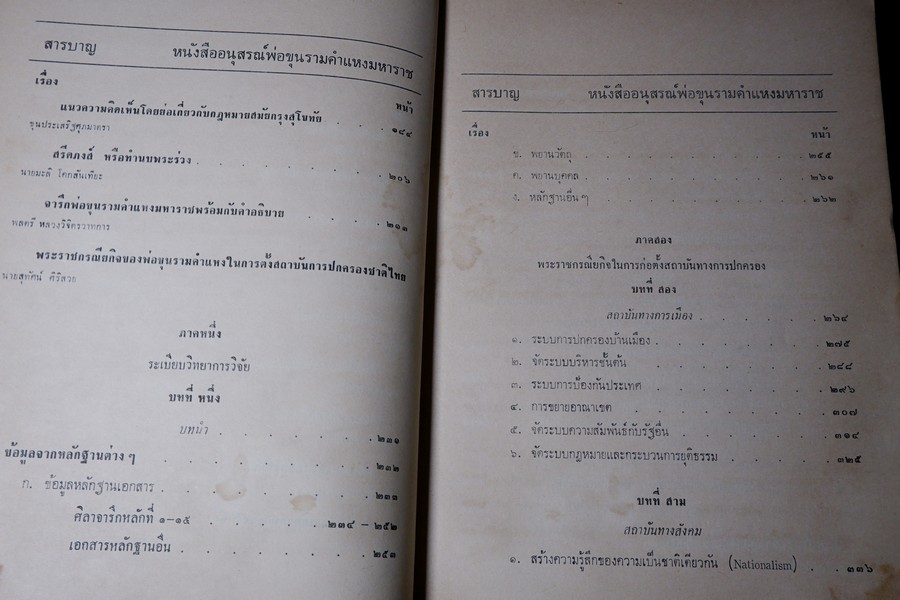 สารบาญ หนังสืออนุสรณ์พ่อขุนรามคำแหงมหาราช
เรื่อง หน้า
แนวความคิดเห็นโดยย่อเกี่ยวกับกฎหมายสมัยกรุงสุโขทัย . . . ๑๔๔
ขุนประเสริฐศุภมาตรา
สรีดภงส์ หรือทำนบพระร่วง . . . . . . . ๒๐๖
นายมะลิ โคกสันเทียะ
จารึกพ่อขุนรามคำแหงมหาราชพร้อมกับคำอธิบาย . . . . ๒๑๓
พลตรี หลวงวิจิตรวาทการ
พระราชกรณียกิจของพ่อขุนรามคำแหงในการตั้งสถาบันการปกครองชาติไทย
นายสุทัศน์ ศิริสวย
ภาคหนึ่ง
ระเบียบวิทยาการวิจัย
บทที่ หนึ่ง
บทนำ . . . . . . ๒๓๑
ข้อมูลจากหลักฐานต่าง ๆ . . . . . . . ๒๓๒
ก. ข้อมูลหลักฐานเอกสาร . . . . . . . ๒๓๓
ศิลาจารึกหลักที่ ๑-๑๕ . . . . ๒๓๔ - ๒๕๒
เอกสารหลักฐานอื่น . . . . . . ๒๕๓
สารบาญ หนังสืออนุสรณ์พ่อขุนรามคำแหงมหาราช
เรื่อง หน้า
ข. พยานวัตถุ . . . . . . . . ๒๕๕
ค. พยานบุคคล . . . . . . . . ๒๖๑
ง. หลักฐานอื่น ๆ . . . . . . . . ๒๖๒
ภาคสอง
พระราชกรณียกิจในการก่อตั้งสถาบันทางการปกครอง
บทที่ สอง
สถาบันทางการเมือง . . . . . ๒๖๔
๑. ระบบการปกครองบ้านเมือง . . . . . . ๒๗๕
๒. จัดระบบบริหารชั้นต้น . . . . . . . ๒๘๘
๓. ระบบการป้องกันประเทศ . . . . . . . ๒๙๖
๔. การขยายอาณาเขต . . . . . . . ๓๐๗
๕. จัดระบบความสัมพันธ์กับรัฐอื่น . . . . . . ๓๑๔
๖. จัดระบบกฎหมายและกระบวนการยุติธรรม . . . . ๓๒๕
บทที่ สาม
สถาบันทางสังคม
๑. สร้างความรู้สึกของความเป็นชาติเดียวกัน (Nationalism) . . ๓๓๖